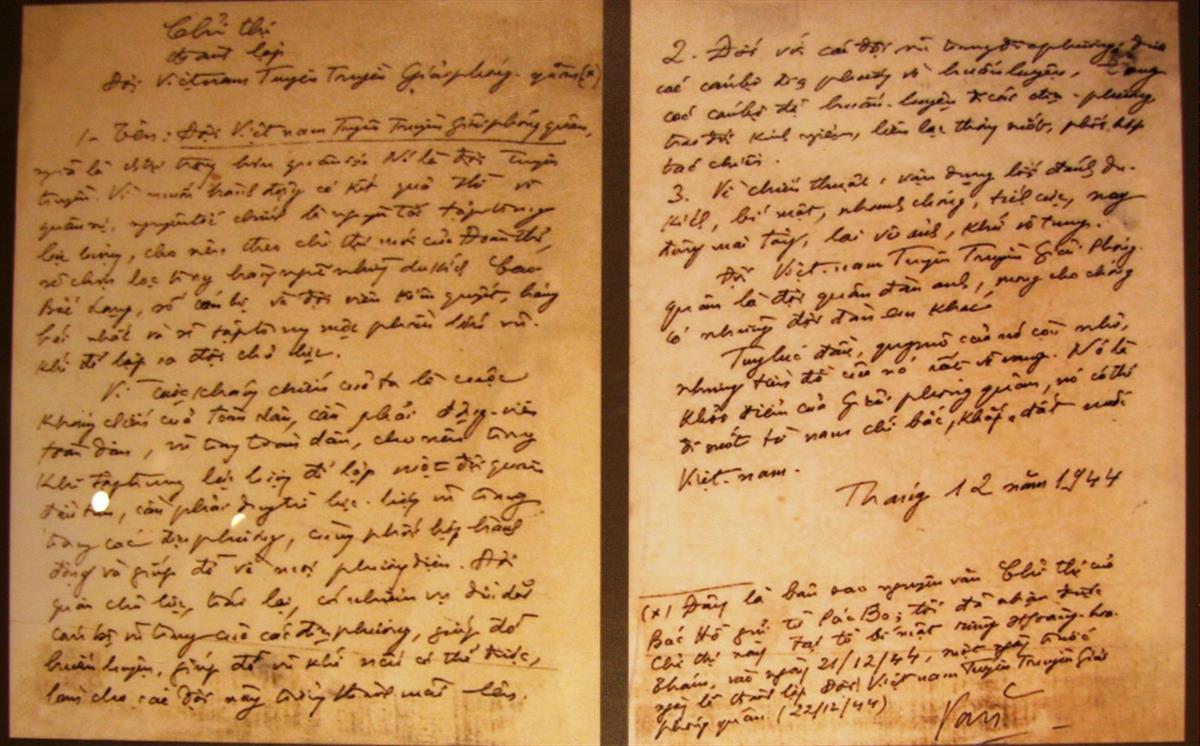 Chỉ thị
thành lập
Đội Việt nam Tuyên Truyền Giải phóng quân (x)
1- Tên: Đội Việt nam Tuyên Truyền Giải phóng quân,
nghĩa là chính trị trọng hơn quân sự. Nó là đội Tuyên
truyền. Vì muốn hành động có kết quả thì về
quân sự, nguyên tắc chính là nguyên tắc tập trung
lực lượng, cho nên, theo chỉ thị mới của Đoàn thể,
sẽ chọn lọc trong hàng ngũ những du kích Cao
Bắc Lạng, số cán bộ và đội viên kiên quyết, hăng
hái nhất và sẽ tập trung một phần lớn vũ
khí để lập ra đội chủ lực.
Vì cuộc kháng chiến của ta là cuộc
kháng chiến của toàn dân, cần phải động viên
toàn dân, vũ trang toàn dân, cho nên trong
khi tập trung lực lượng để lập một đội quân
đầu tiên, cần phải duy trì lực lượng vũ trang
trong các địa phương, cùng phối hợp hành
động và giúp đỡ về mọi phương diện. Đội
quân chủ lực, trái lại, có nhiệm vụ dìu dắt
cán bộ vũ trang của các địa phương, giúp đỡ
huấn luyện, giúp đỡ vũ khí nếu có thể được,
làm cho các đội này trưởng thành mãi lên.
2. Đối với các đội vũ trang địa phương, đưa
các cán bộ địa phương về huấn luyện, tung
các cán bộ đã huấn luyện đi các địa phương
trao đổi kinh nghiệm, liên lạc thông suốt, phối hợp
tác chiến.
3. Về chiến thuật, vận dụng lối đánh du
kích, bí mật, nhanh chóng, tích cực, nay
đông mai tây, lai vô ảnh, khứ vô tung.
Đội Việt-nam Tuyên Truyền Giải Phóng
quân là đội quân đàn anh, mong cho chóng
có những đội đàn em khác
Tuy lúc đầu, quy mô của nó còn nhỏ,
nhưng tiền đồ của nó rất vẻ vang. Nó là
khởi điểm của Giải phóng quân, nó có thể
đi suốt từ nam chí bắc, khắp đất nước
Việt-nam.
Tháng 12 năm 1944
(x) Đây là bản sao nguyên văn Chỉ thị của
Bác Hồ gửi từ Pác Bó; tôi đã nhận được
Chỉ thị này tại tổ bí mật rừng Hoàng-hoa-
Thám, vào ngày 21/12/44, một ngày trước
ngày lễ thành lập Đội Việt nam Tuyên Truyền Giải
phóng quân (22/12/44)
Văn